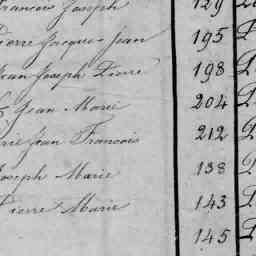 François Joseph 129
Pierre Jacques Jean 195
Jean Joseph Pierre 198
Jean Marie 204
Jean François 212
Joseph Marie 138
Pierre Marie 143
145